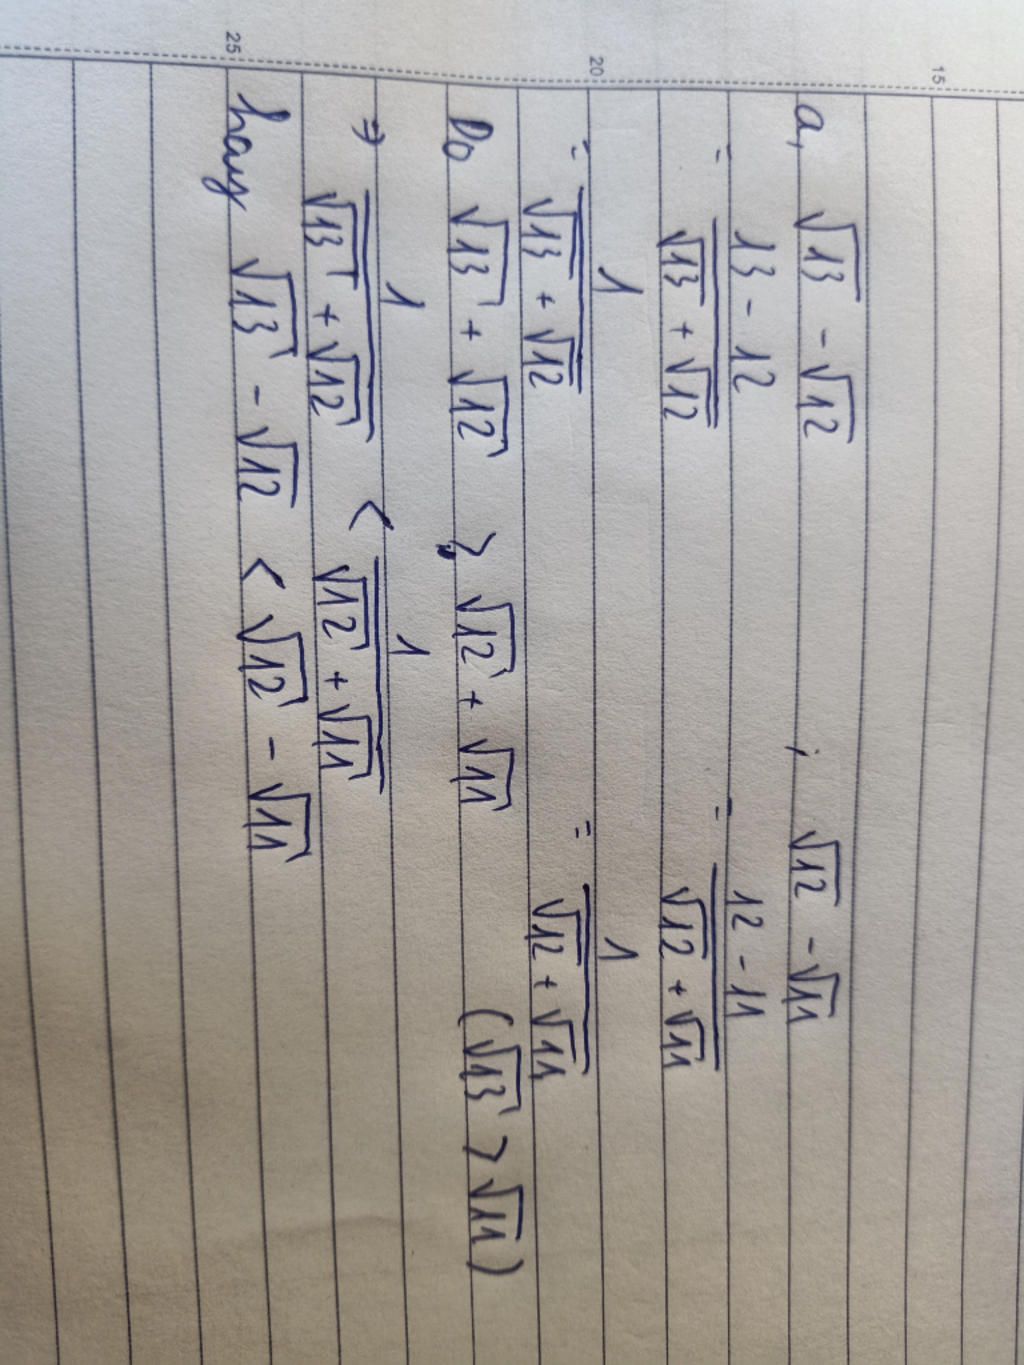 15
a, √13 - √12 ; √12 - √11
= (13 - 12)/(√13 + √12) = (12 - 11)/(√12 + √11)
20
= 1/(√13 + √12) = 1/(√12 + √11)
Do √13 + √12 > √12 + √11 (√13 > √11)
⇒ 1/(√13 + √12) < 1/(√12 + √11)
25
hay √13 - √12 < √12 - √11